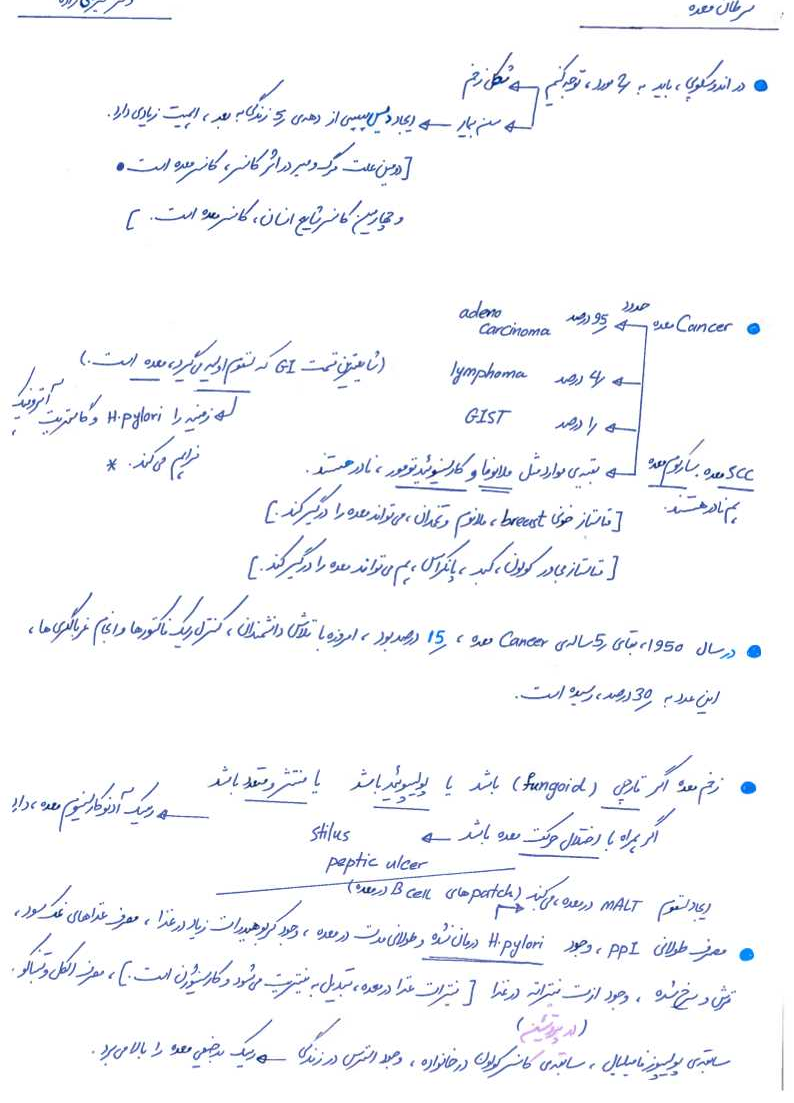 سرطان معده
در اندوسکوپی، باید به 2 مورد، توجه کنیم ← شکل زخم
← سن بیمار ← ایجاد دیس پپسی از دهه‌ی 5 زندگی به بعد، اهمیت زیادی دارد.
[دومین علت مرگ و میر در اثر کانسر، کانسر معده است
و چهارمین کانسر شایع انسان، کانسر معده است.]
Cancer معده ← حدود 95 درصد adeno carcinoma
← 4 درصد lymphoma (شایعترین قسمت GI که لنفوم اولیه می‌گیرد، معده است.)
← 1 درصد GIST
زمینه را H.pylori و گاستریت آتروفیک
فراهم می‌کند. *
← بقیه‌ی موارد مثل ملانوما و کارسینوئید تومور، نادر هستند.
SCC معده، سارکوم معده
هم نادر هستند.
[متاستاز خونی breast، ملانوم و تخمدان، می‌تواند معده را درگیر کند.]
[متاستاز مجاور کولون، کبد، پانکراس، هم می‌تواند معده را درگیر کند.]
در سال 1950، بقای 5 ساله‌ی Cancer معده، 15 درصد بود، امروزه با تلاش دانشمندان، کنترل ریسک فاکتورها و انجام غربالگری‌ها،
این عدد به 30 درصد، رسیده است.
زخم معده اگر قارچی (fungoid) باشد یا پولیپوئید باشد یا منتشر و متعدد باشد
← ریسک آدنوکارسینوم معده، دارد
اگر همراه با اختلال حرکت معده باشد ← stilus
peptic ulcer
ایجاد لنفوم MALT در معده، می‌کند (patch های B cell در معده)
مصرف طولانی PPI، وجود H.pylori درمان نشده و طولانی مدت در معده، وجود کربوهیدرات زیاد در غذا، مصرف غذاهای نمک سود،
ترش و سرخ شده، وجود ازت نیتراته در غذا [نیترات غذا در معده، تبدیل به نیتریت می‌شود و کارسینوژن است.]، مصرف الکل و تنباکو.
سابقه‌ی پولیپوز فامیلیال، سابقه‌ی کانسر کولون در خانواده، وجود استرس در زندگی ← ریسک بدخیمی معده را بالا می‌برد.